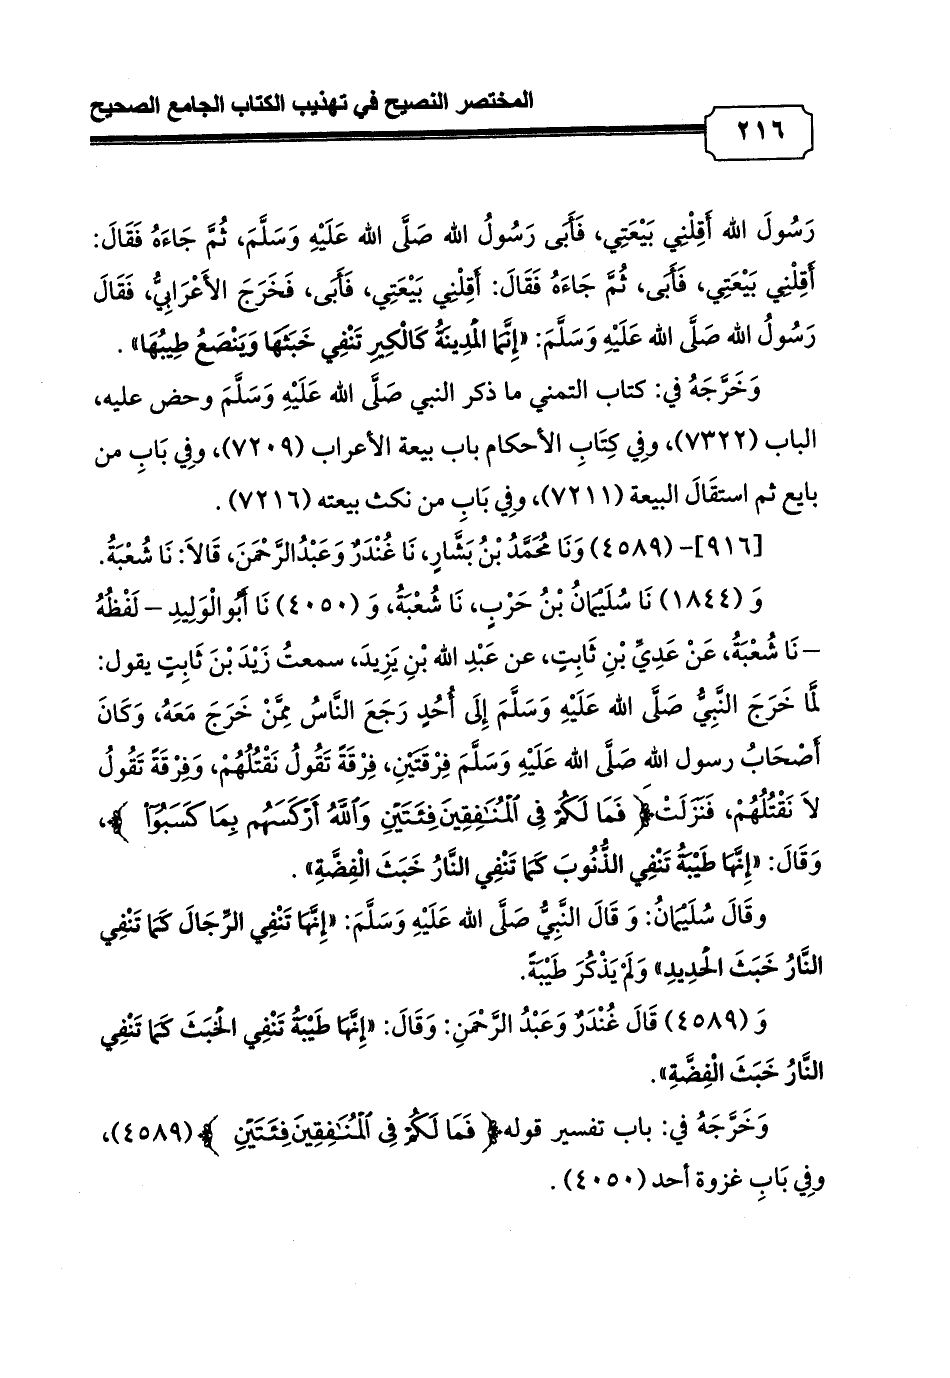 المختصر النصيح في تهذيب الكتاب الجامع الصحيح
٢١٦
رَسُولَ الله أَقِلْنِي بَيْعَتِي، فَأَبَى رَسُولُ الله صَلَّى الله عَلَيْهِ وَسَلَّمَ، ثُمَّ جَاءَهُ فَقَالَ:
أَقِلْنِي بَيْعَتِي، فَأَبَى، ثُمَّ جَاءَهُ فَقَالَ: أَقِلْنِي بَيْعَتِي، فَأَبَى، فَخَرَجَ الأَعْرَابِيُّ، فَقَالَ
رَسُولُ الله صَلَّى الله عَلَيْهِ وَسَلَّمَ: «إِنَّمَا الْمَدِينَةُ كَالْكِيرِ تَنْفِي خَبَثَهَا وَيَنْصَعُ طِيبُهَا» .
وَخَرَّجَهُ في: كتاب التمني ما ذكر النبي صَلَّى الله عَلَيْهِ وَسَلَّمَ وحض عليه،
الباب (٧٣٢٢)، وفِي كِتَابِ الأحكام باب بيعة الأعراب (٧٢٠٩)، وفِي بَابِ من
بايع ثم استقَالَ البيعة (٧٢١١)، وفِي بَابِ من نكث بيعته (٧٢١٦) .
[٩١٦]- (٤٥٨٩) وَنَا مُحَمَّدُ بْنُ بَشَّارٍ، نَا غُنْدَرٌ وَعَبْدُالرَّحْمَنَ، قَالاَ: نَا شُعْبَةُ.
وَ (١٨٤٤) نَا سُلَيْمَانُ بْنُ حَرْبٍ، نَا شُعْبَةُ، وَ (٤٠٥٠) نَا أَبُو الْوَلِيدِ – لَفْظُهُ
– نَا شُعْبَةُ، عَنْ عَدِيِّ بْنِ ثَابِتٍ، عن عَبْدِ الله بْنِ يَزِيدَ، سمعتُ زَيْدَ بْنَ ثَابِتٍ يقول:
لَمَّا خَرَجَ النَّبِيُّ صَلَّى الله عَلَيْهِ وَسَلَّمَ إِلَى أُحُدٍ رَجَعَ النَّاسُ مِمَّنْ خَرَجَ مَعَهُ، وَكَانَ
أَصْحَابُ رسول الله صَلَّى الله عَلَيْهِ وَسَلَّمَ فِرْقَتَيْنِ، فِرْقَةً تَقُولُ نَقْتُلُهُمْ، وَفِرْقَةً تَقُولُ
لاَ نَقْتُلُهُمْ، فَنَزَلَتْ ﴿ فَمَا لَكُمْ فِى ٱلْمُنَـٰفِقِينَ فِئَتَيْنِ وَٱللَّهُ أَرْكَسَهُم بِمَا كَسَبُوٓا۟ ﴾،
وَقَالَ: «إِنَّهَا طَيْبَةُ تَنْفِي الذُّنُوبَ كَمَا تَنْفِي النَّارُ خَبَثَ الْفِضَّةِ» .
وقَالَ سُلَيْمَانُ: وَ قَالَ النَّبِيُّ صَلَّى الله عَلَيْهِ وَسَلَّمَ: «إِنَّهَا تَنْفِي الرِّجَالَ كَمَا تَنْفِي
النَّارُ خَبَثَ الْحَدِيدِ» وَلَمْ يَذْكُرَ طَيْبَةً.
وَ (٤٥٨٩) قَالَ غُنْدَرٌ وَعَبْدُ الرَّحْمَنِ: وَقَالَ: «إِنَّهَا طَيْبَةُ تَنْفِي الْخَبَثَ كَمَا تَنْفِي
النَّارُ خَبَثَ الْفِضَّةِ».
وَخَرَّجَهُ في: باب تفسير قوله ﴿ فَمَا لَكُمْ فِى ٱلْمُنَـٰفِقِينَ فِئَتَيْنِ ﴾ (٤٥٨٩)،
وفِي بَابِ غزوة أحد (٤٠٥٠) .